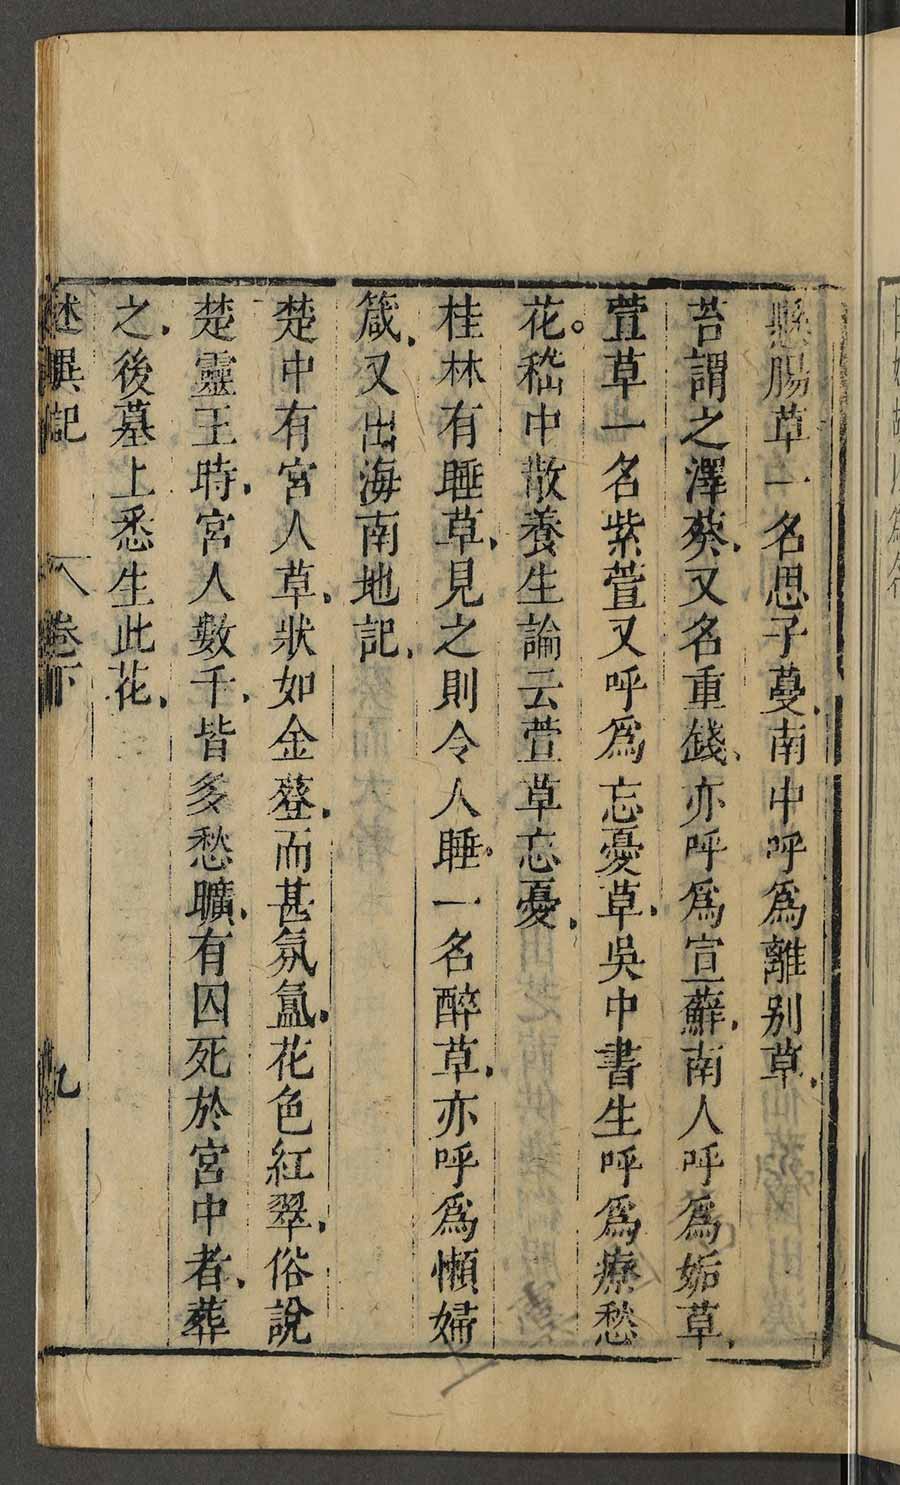 懸腸草一名思子蔓南中呼為離別草
苔謂之澤葵又名重錢亦呼為宣蘚南人呼為姤草
萱草一名紫萱又呼為忘憂草吳中書生呼為療愁
花。嵇中散養生論云萱草忘憂
桂林有睡草見之則令人睡一名醉草亦呼為懶婦
箴又出海南地記
楚中有宮人草狀如金𦽦而甚氛氳花色紅翠俗說
楚靈王時宮人數千皆多愁曠有囚死於宮中者葬
之後墓上悉生此花
述異記 卷下 九